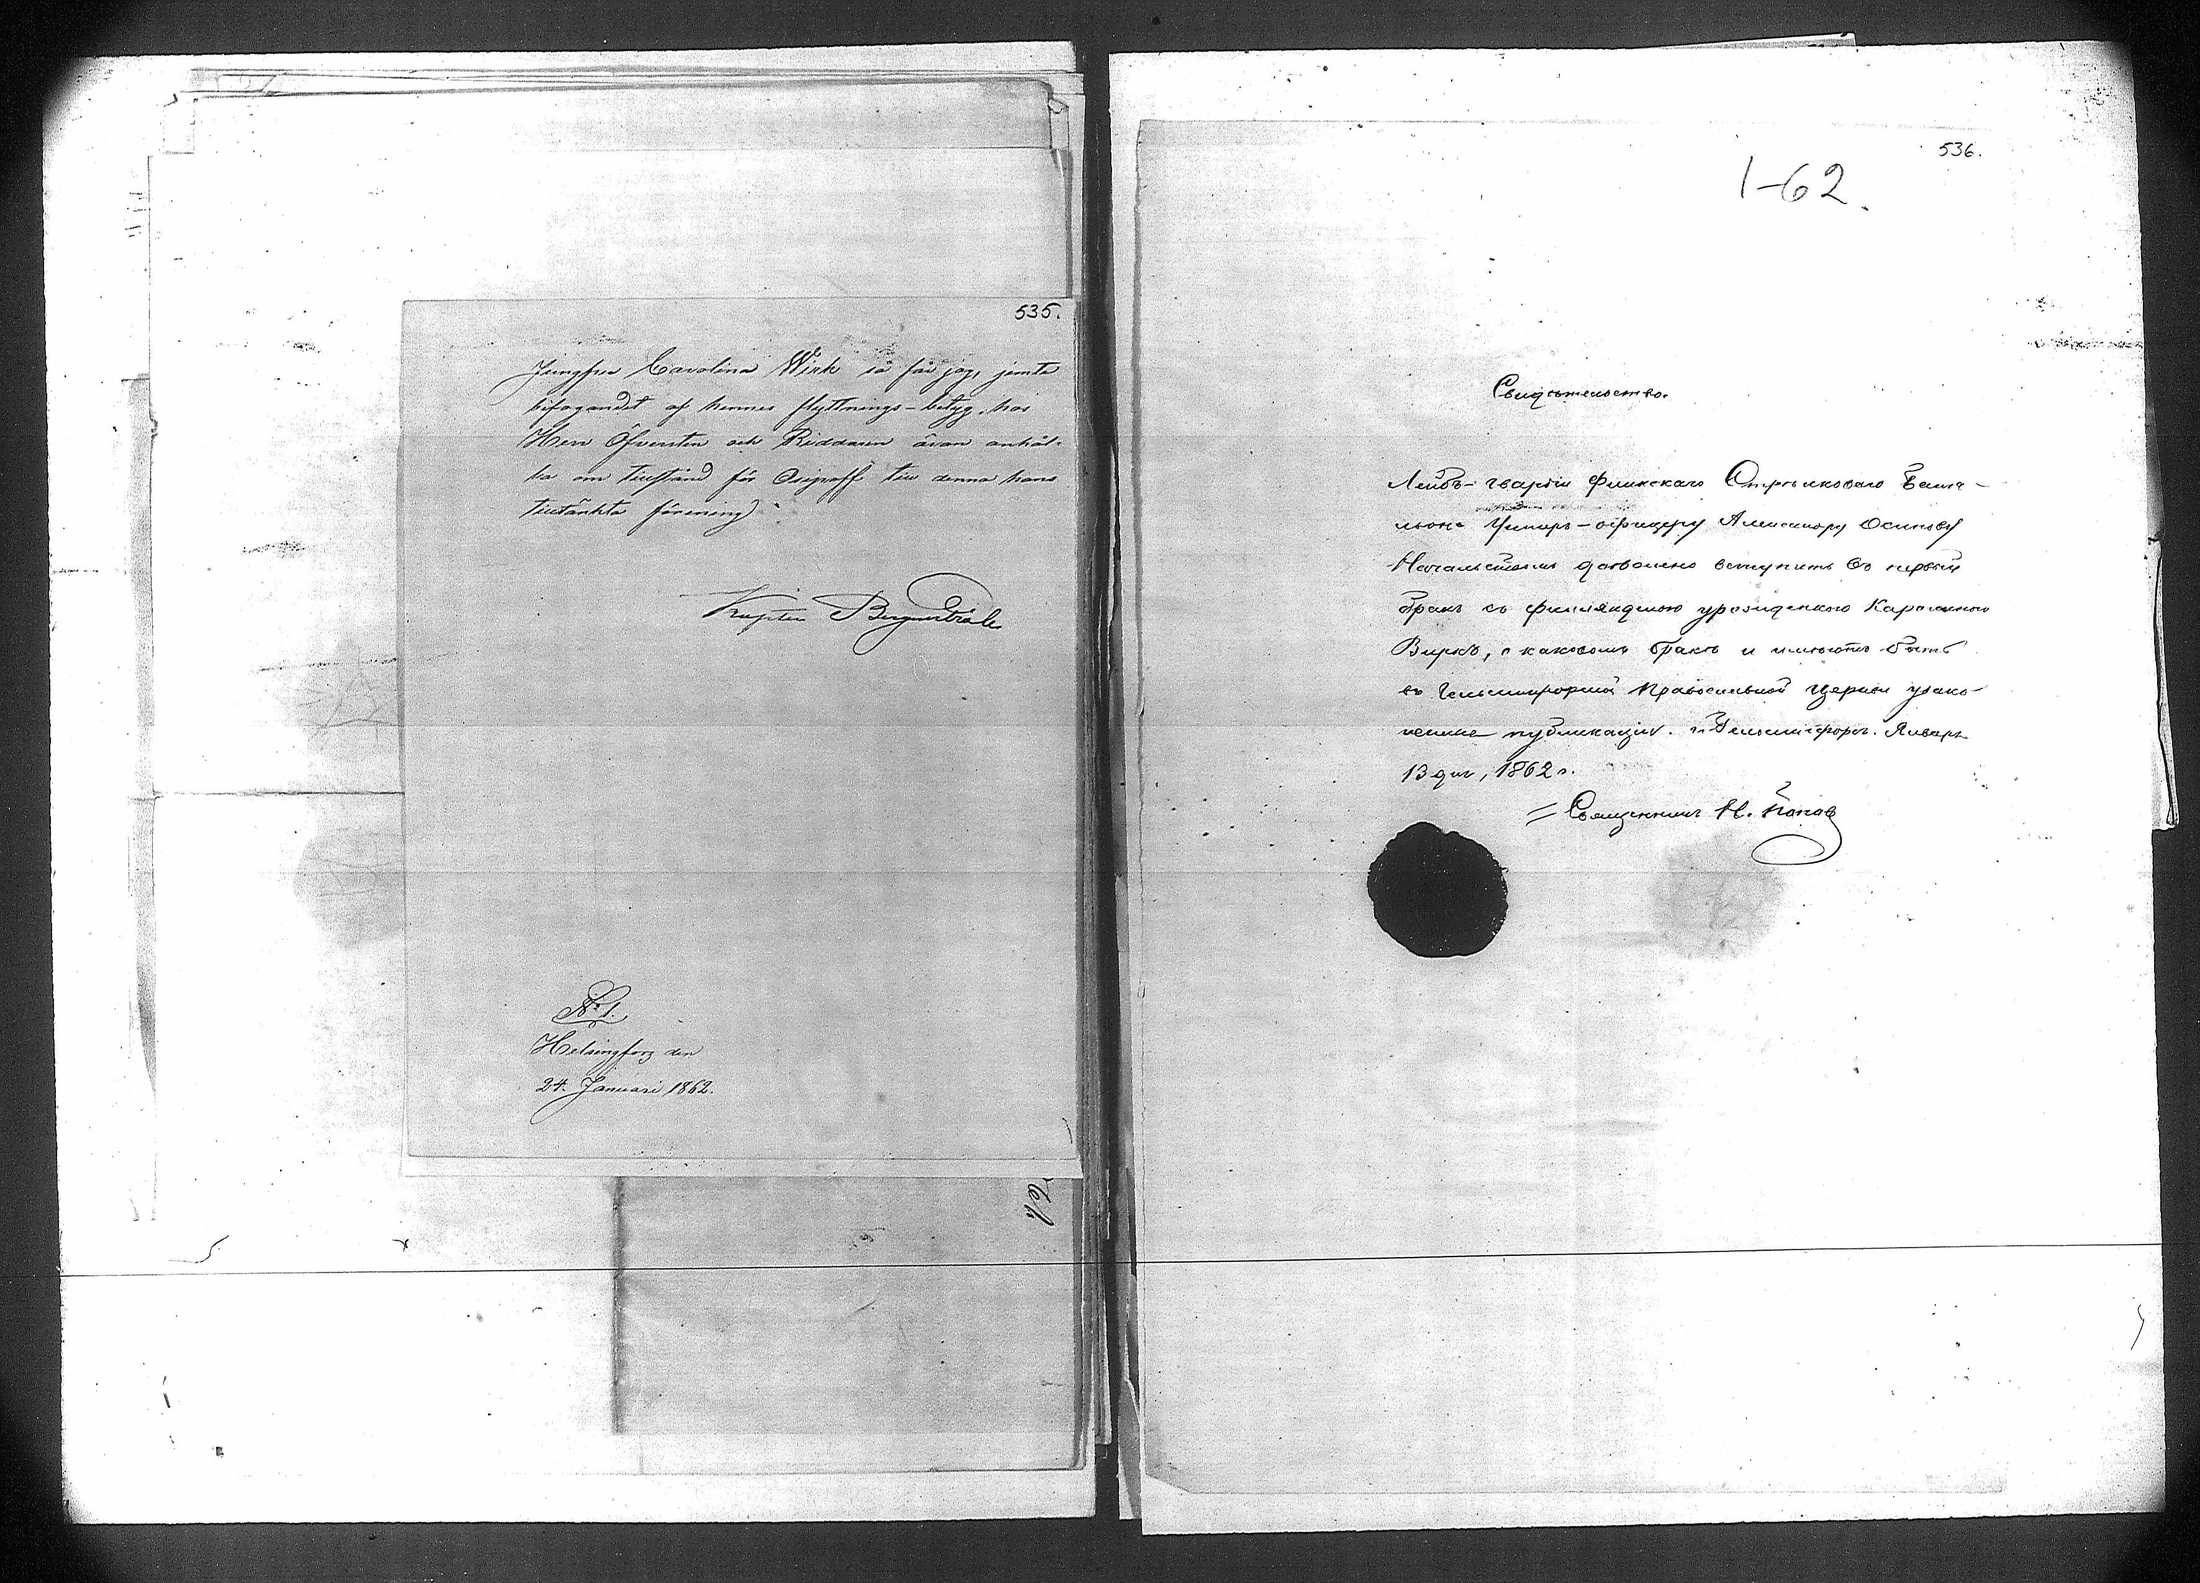 535.
Jungfru Carolina Wirk så får jag, jemte
bifogandet af hennes flyttnings-betyg, hos
Herr Öfversten och Riddaren äran anhål-
la om tillstånd för Osipoff till denna hans
tilltänkta förening.
Kapten Bergenstråle
No 1.
Helsingfors den
24. Januari 1862.
536.
1-62.
Свидѣтельство.
Лейбъ-гвардіи Финскаго Стрѣлковаго Бата-
льона Унтеръ-офицеру Александру Осипову
Начальствомъ дозволено вступить въ первый
бракъ съ финляндскою уроженкою Каролиною
Виркъ, о каковомъ бракѣ и имѣютъ быть
въ Гельсингфорской Православной церкви узако-
ненные публикаціи. г. Гельсингфорсъ. Январь
13 дня, 1862 г.
Священникъ Н. Поповъ